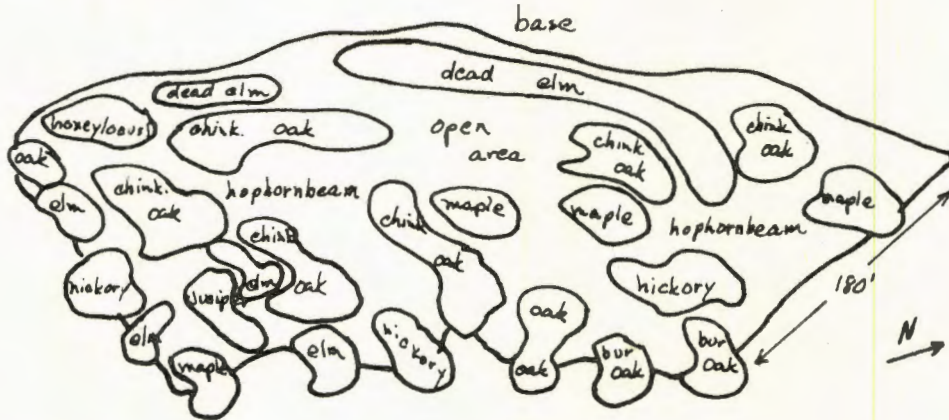 base
dead elm
dead elm
honeylocust
chink. oak
open
area
chink
oak
chink
oak
oak
elm
chink.
oak
hophornbeam
chink
oak
maple
maple
hophornbeam
maple
chink
oak
elm
hickory
juniper
hickory
180'
oak
elm
maple
elm
hickory
oak
bur
oak
bur
oak
N